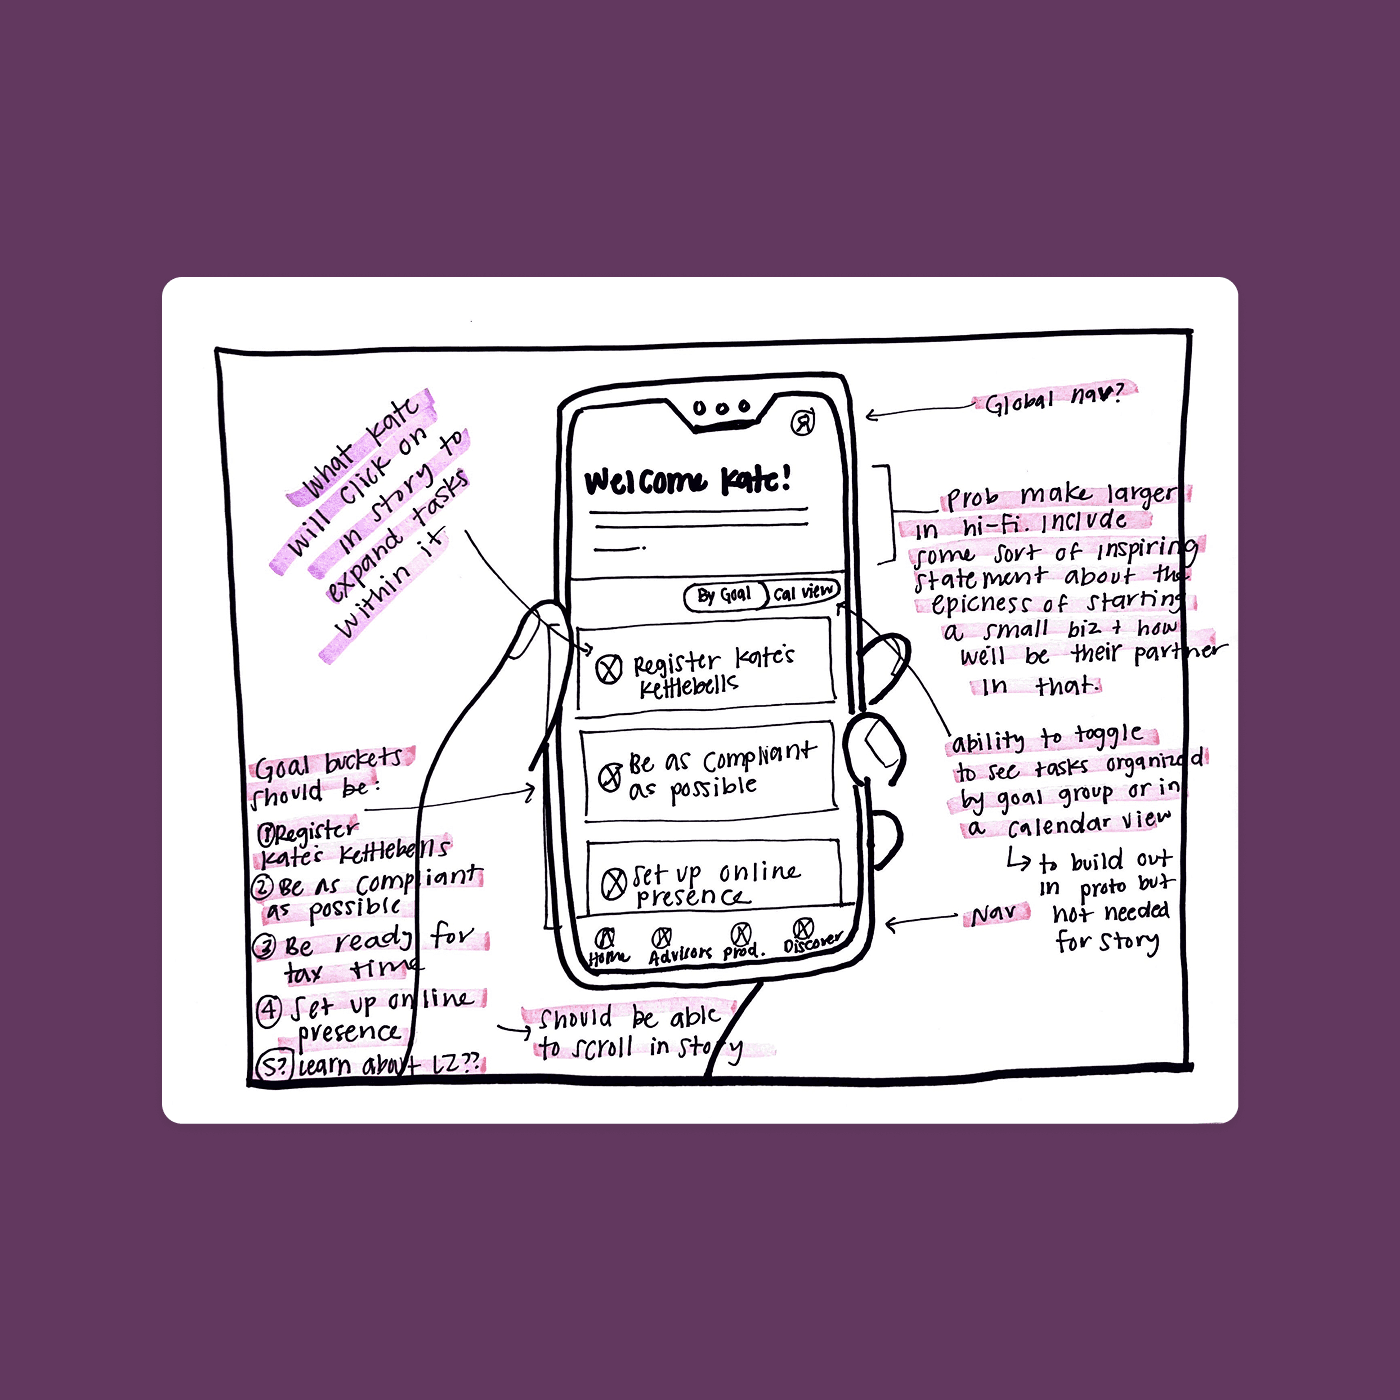 What Kate
will click on
in story to
expand tasks
within it
Goal buckets
should be:
①Register
Kate's Kettlebells
② Be as compliant
as possible
③ Be ready for
tax time
④ Set up online
presence
5? learn about LZ??
Welcome Kate!
By Goal
Cal view
Register Kate's
Kettlebells
Be as compliant
as possible
Set up online
presence
Home
Advisors
Prod.
Discover
should be able
to scroll in story
Global nav?
Prob make larger
in hi-fi. Include
some sort of inspiring
statement about the
epicness of starting
a small biz + how
we'll be their partner
in that.
ability to toggle
to see tasks organized
by goal group or in
a calendar view
↳ to build out
in proto but
not needed
for story
Nav